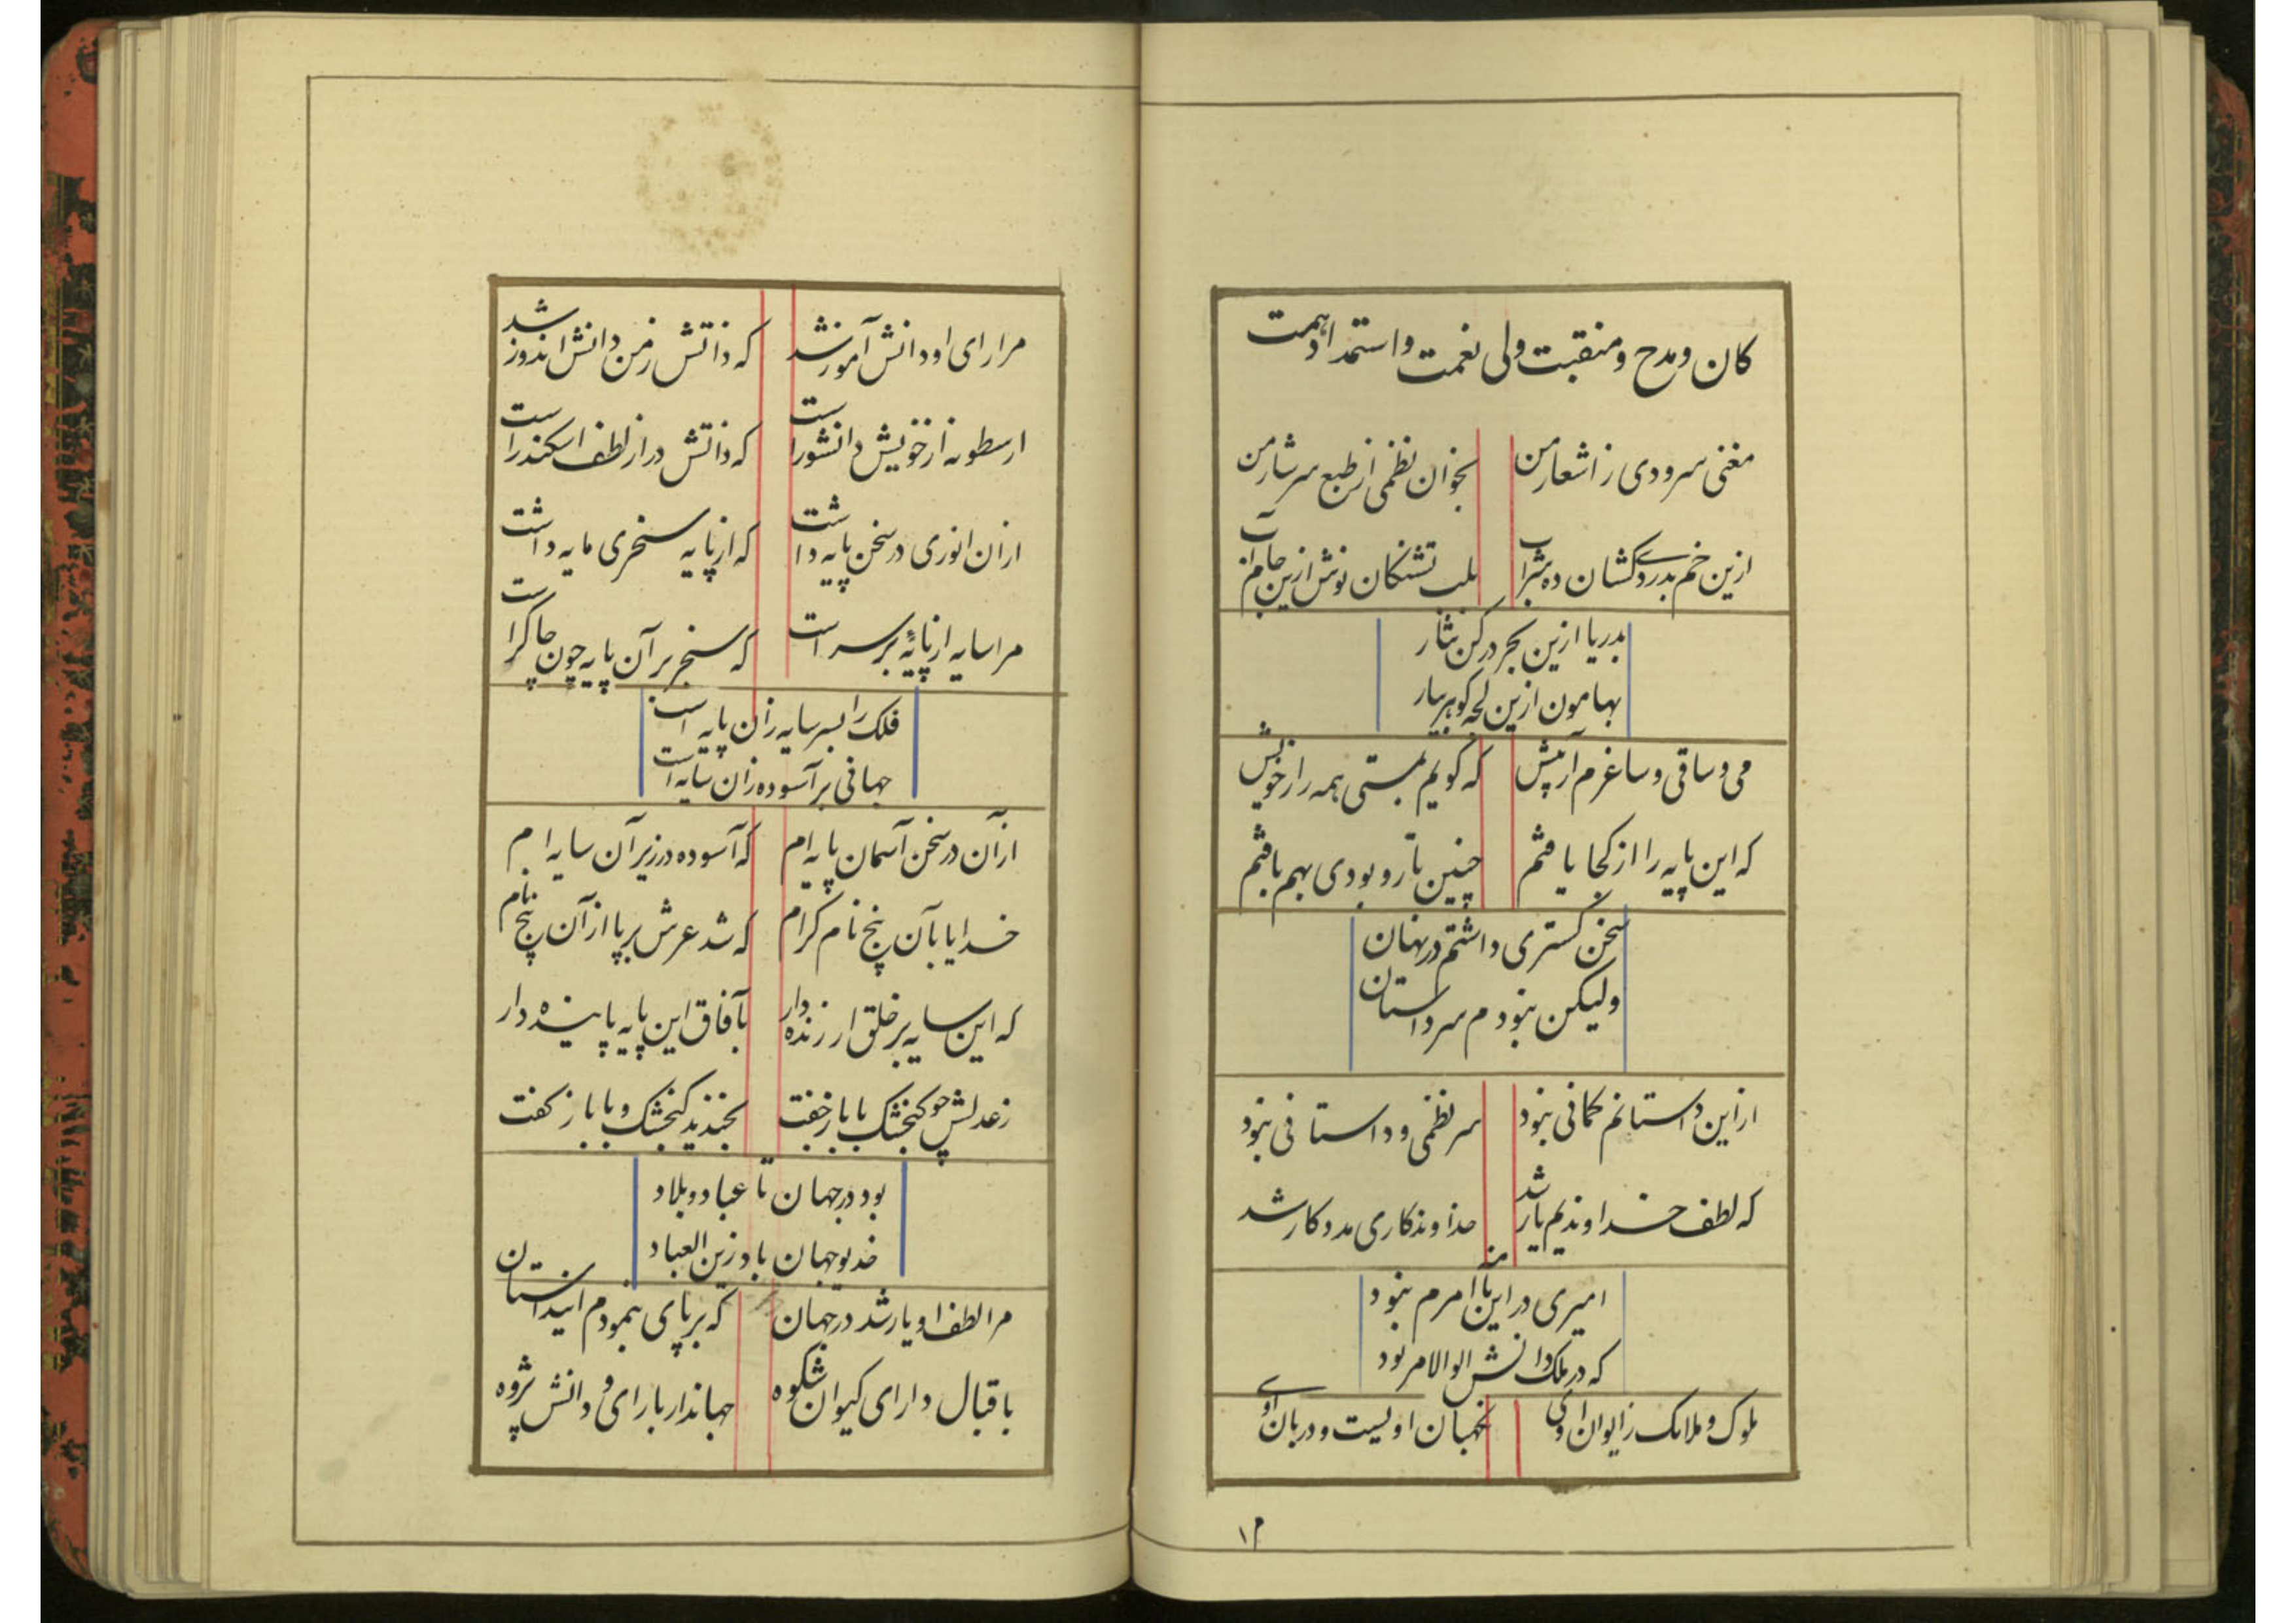 کان و مدح و منقبت ولی نعمت و استمداد همت
مغنی سرودی ز اشعار من بخوان نظمی از طبع سرشار من
ازین خم بدردی کشان ده شراب بلب تشنکان نوش ازین جام آب
بدریا ازین بحر در کن نثار
بهامون ازین لجه کوهر ببار
می و ساقی و ساغرم آر پیش که کویم بمستی همه راز خویش
که این پایه را از کجا یافتم چنین تار و پودی بهم بافتم
سخن کستری داشتم در نهان
ولیکن نبودم سر داستان
ازین داستانم کمانی نبود سر نظمی و داستانی نبود
که لطف خداوندیم یار شد خداوندکاری مددکار شد
امیری در این نامه آمرم بود
که در ملک دانش الوالامر بود
ملوک و ملایک ز ایوان اوی نکهبان اویست و دربان اوی
۱۲
مرا رای او دانش آموز شد که ذاتش ز من دانش اندوز شد
ارسطو نه از خویش دانشور است که ذاتش در از لطف اسکندر است
ازان انوری در سخن پایه داشت که از پایه سنجری مایه داشت
مرا سایه از پایهٔ بر سر است که سنجر بر آن پایه چون چاکر است
فلک را بسر سایه زان پایه است
جهانی بر آسوده زان سایه است
از آن در سخن آسمان پایه ام که آسوده در زیر آن سایه ام
خدایا بآن پنج نام کرام که شد عرش بر پا از آن پنج نام
که این سایه بر خلق ارزنده دار بآفاق این پایه پاینده دار
ز عدلش چو کنجشک با باز خفت بخندید کنجشک و با باز کفت
بود در جهان تا عباد و بلاد
خدیو جهان باد زین العباد
مرا لطف او یار شد در جهان که بر پای بنمودم این داستان
باقبال دارای کیوان شکوه جهاندار با رای و دانش پژوه